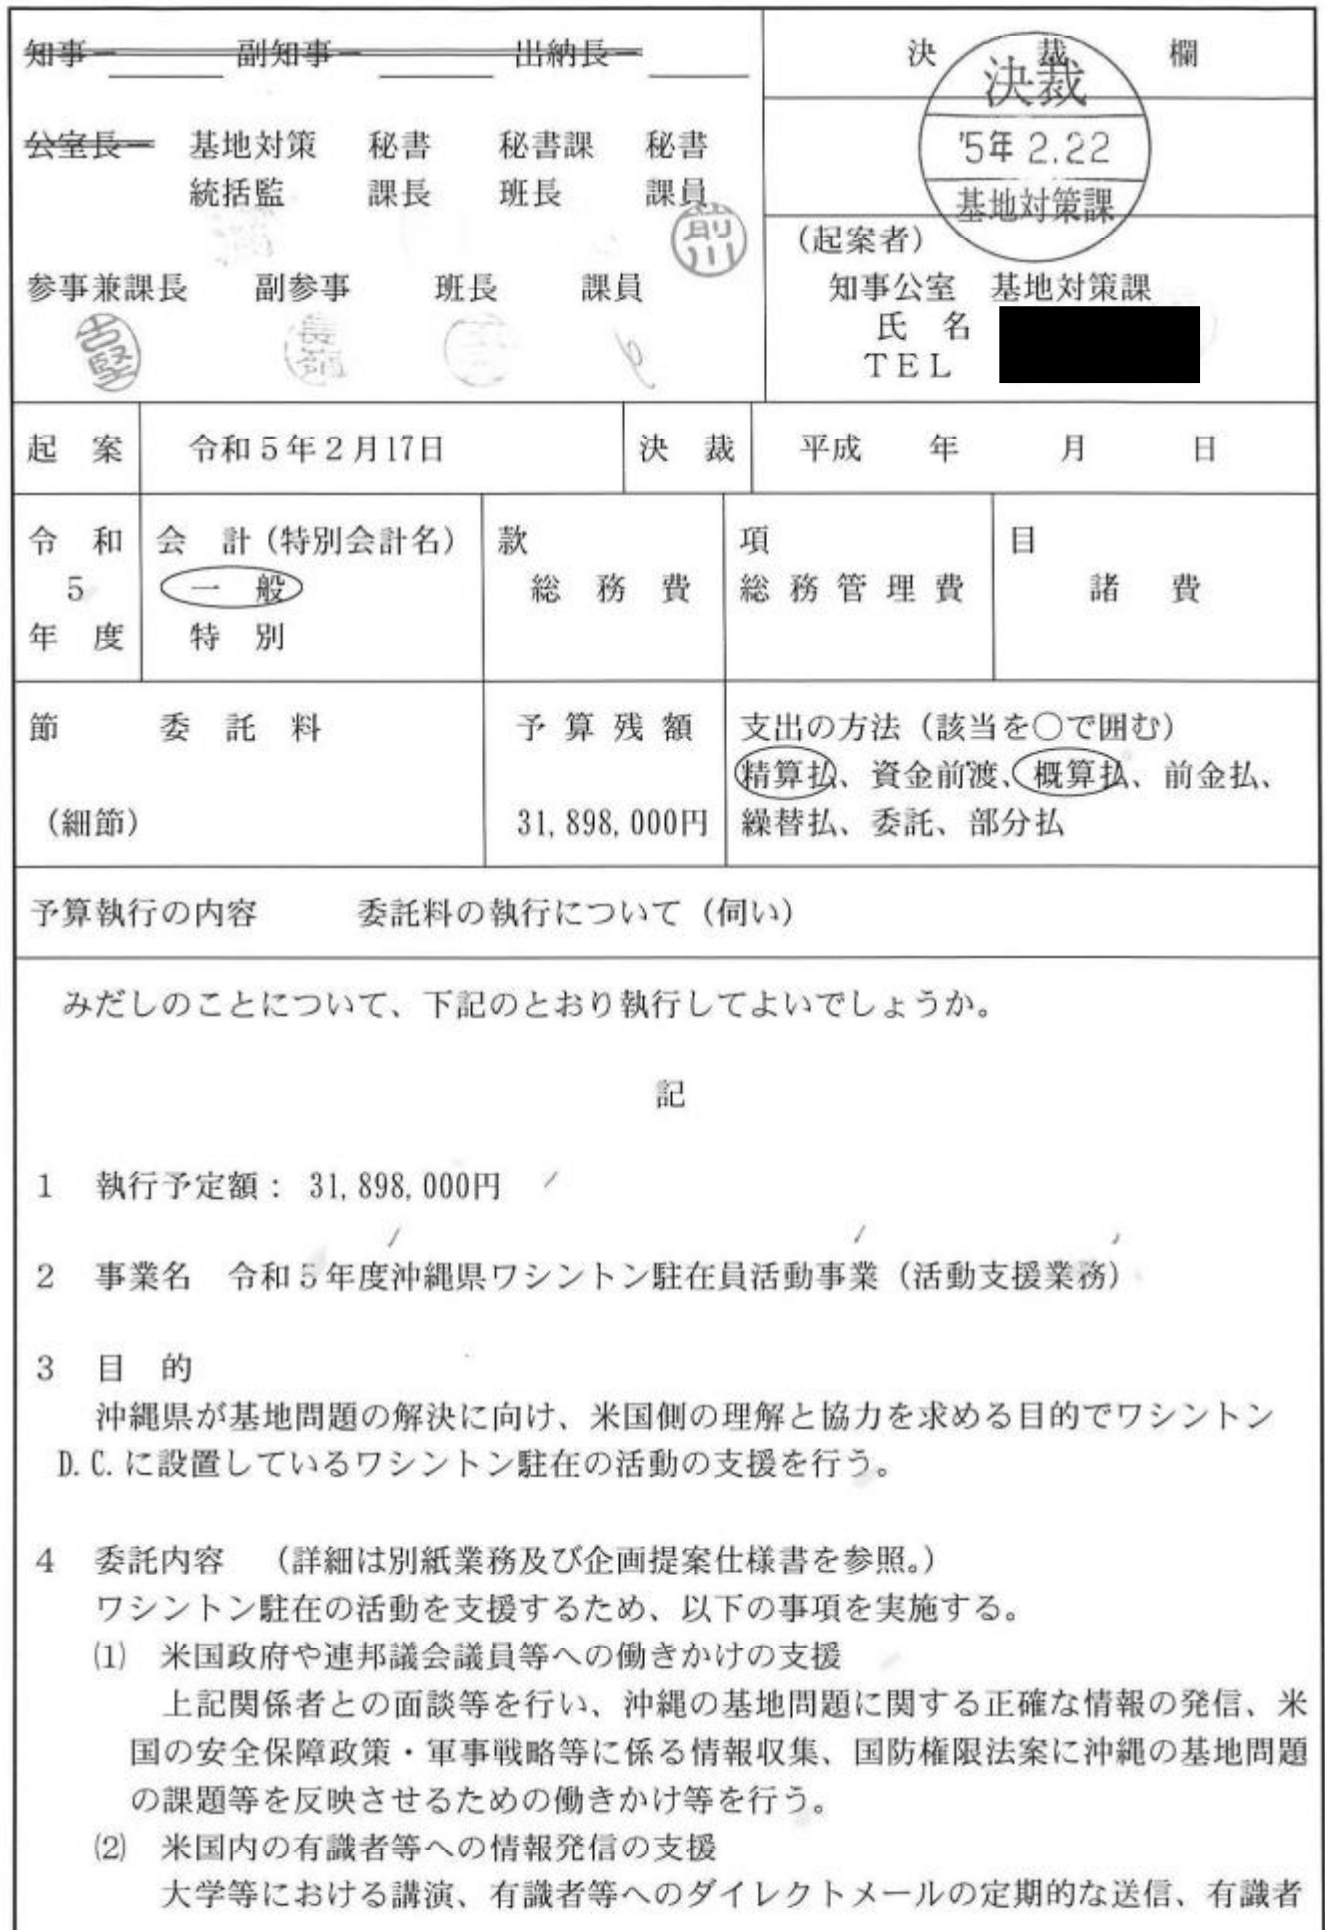 知事 副知事 出納長
公室長 基地対策 秘書 秘書課 秘書
統括監 課長 班長 課員
前川
参事兼課長 副参事 班長 課員
古堅
決 裁 欄
決裁
'5年 2.22
基地対策課
(起案者)
知事公室 基地対策課
氏 名
TEL
起 案 令和5年2月17日 決 裁 平成 年 月 日
令 和 会 計(特別会計名) 款 項 目
5 一 般 総 務 費 総 務 管 理 費 諸 費
年 度 特 別
節 委 託 料 予 算 残 額 支出の方法(該当を○で囲む)
精算払、資金前渡、概算払、前金払、
(細節) 31,898,000円 繰替払、委託、部分払
予算執行の内容 委託料の執行について(伺い)
みだしのことについて、下記のとおり執行してよいでしょうか。
記
1 執行予定額: 31,898,000円
2 事業名 令和5年度沖縄県ワシントン駐在員活動事業(活動支援業務)
3 目 的
沖縄県が基地問題の解決に向け、米国側の理解と協力を求める目的でワシントン
D.C.に設置しているワシントン駐在の活動の支援を行う。
4 委託内容 (詳細は別紙業務及び企画提案仕様書を参照。)
ワシントン駐在の活動を支援するため、以下の事項を実施する。
⑴ 米国政府や連邦議会議員等への働きかけの支援
上記関係者との面談等を行い、沖縄の基地問題に関する正確な情報の発信、米
国の安全保障政策・軍事戦略等に係る情報収集、国防権限法案に沖縄の基地問題
の課題等を反映させるための働きかけ等を行う。
⑵ 米国内の有識者等への情報発信の支援
大学等における講演、有識者等へのダイレクトメールの定期的な送信、有識者